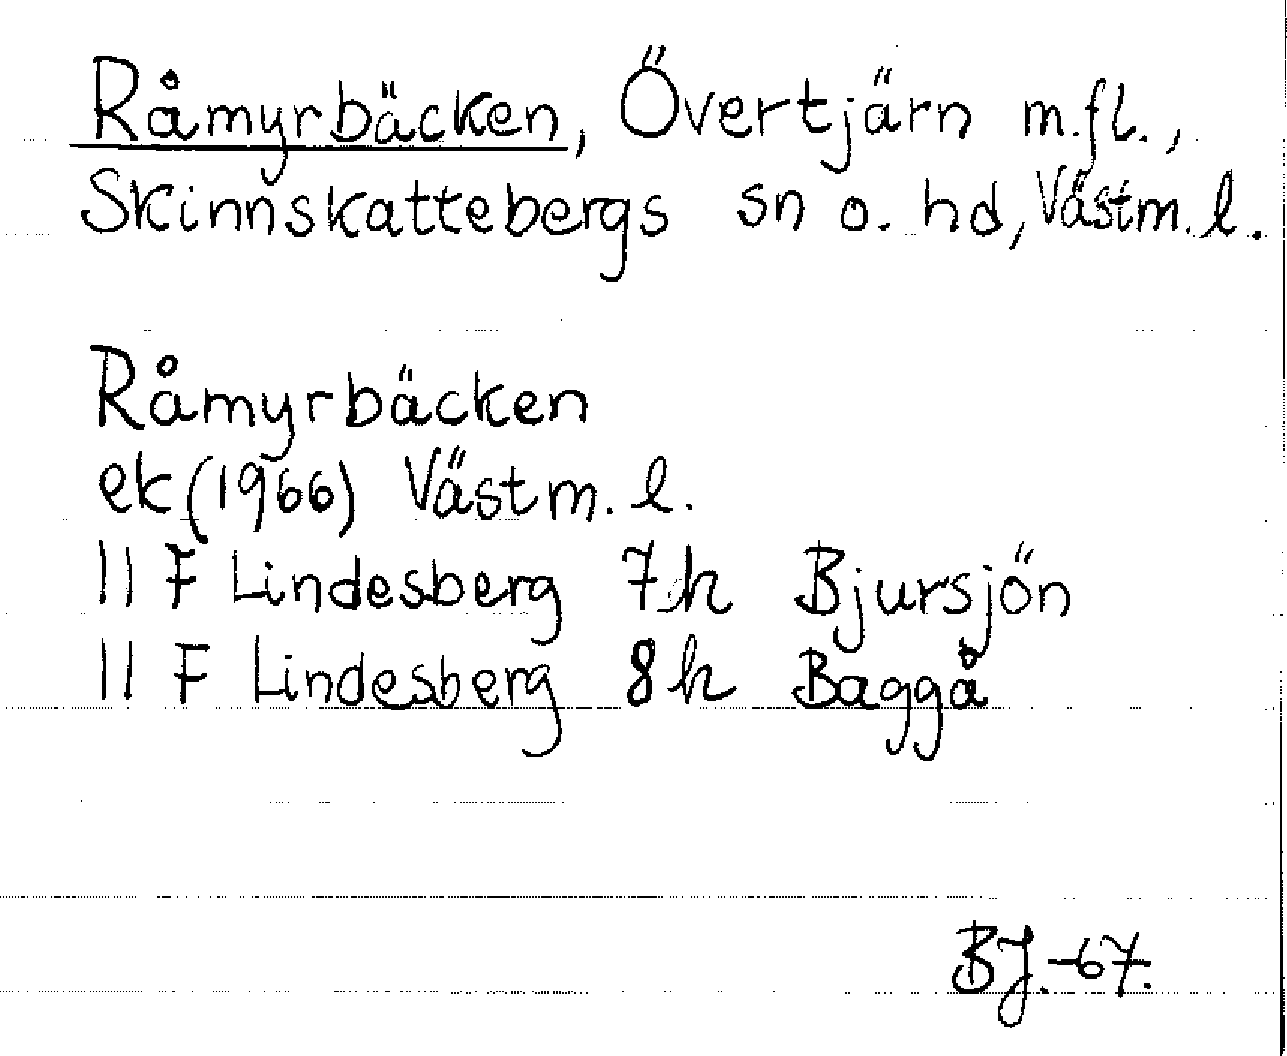 Råmyrbäcken, Övertjärn m.fl.,
Skinnskattebergs sn o. hd, Västm. l.
Råmyrbäcken
ek (1966) Västm. l.
11 F Lindesberg 7h Bjursjön
11 F Lindesberg 8h Baggå
BJ.-67.